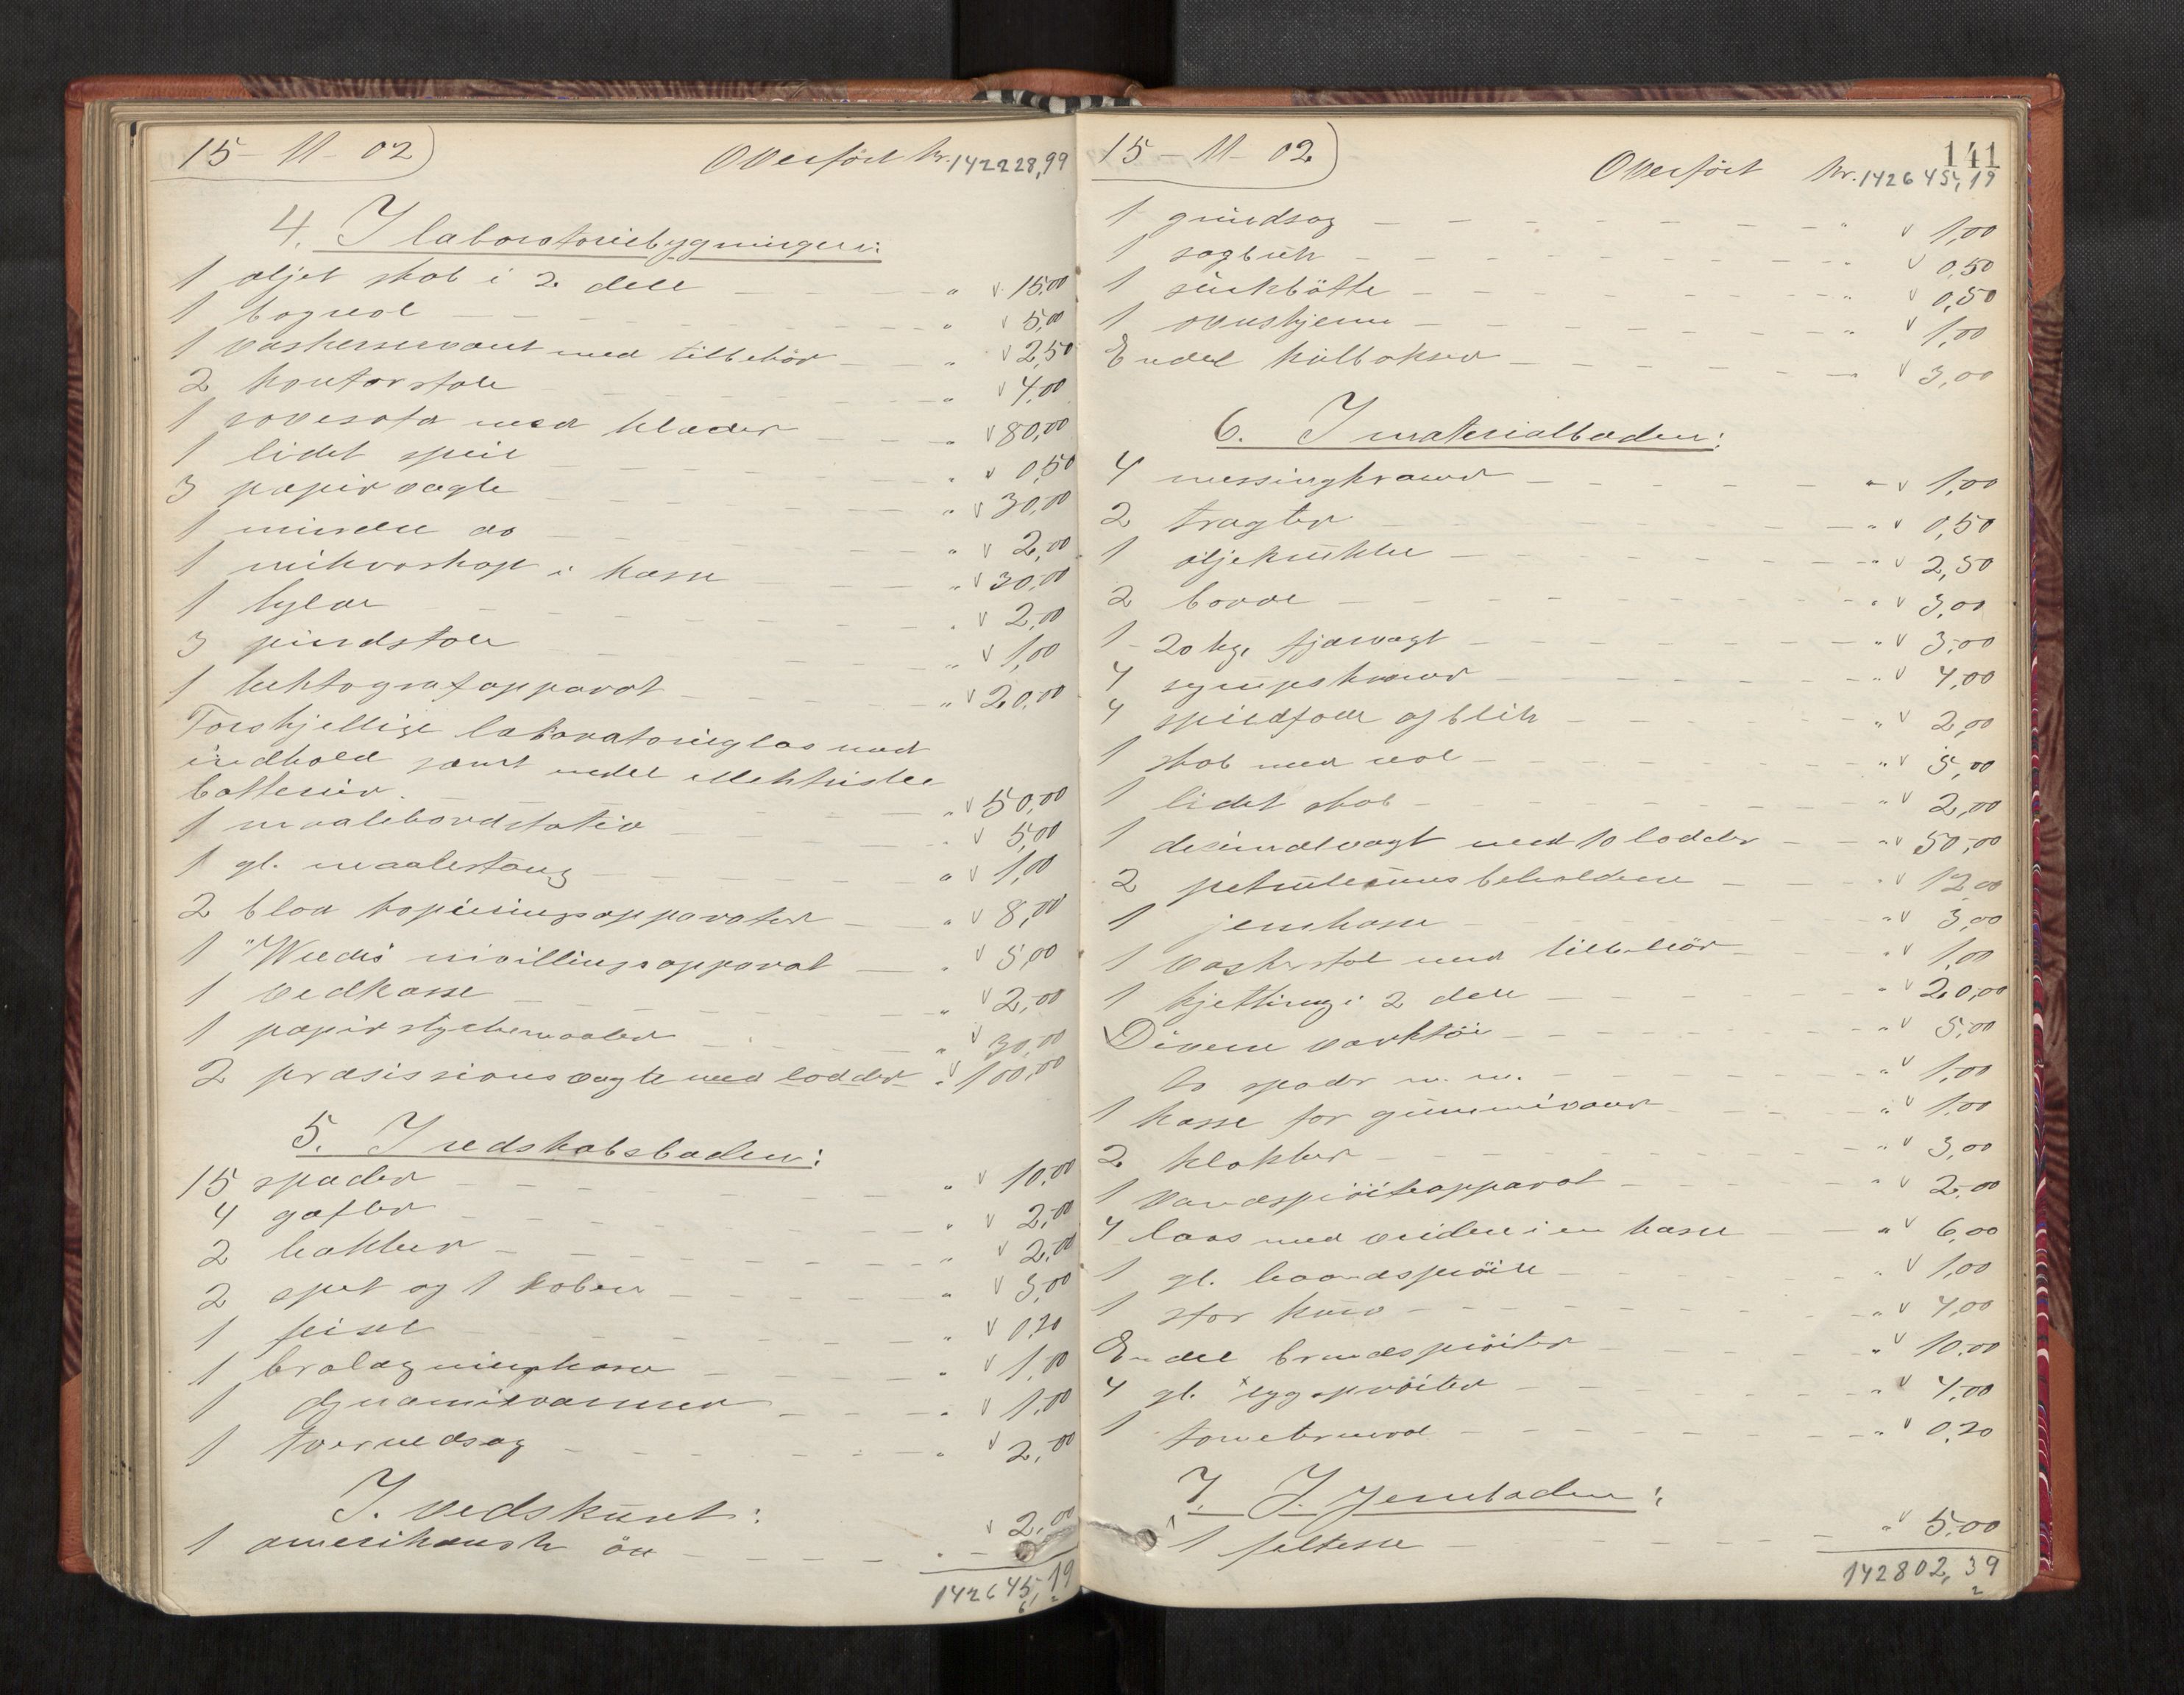 15-11-02
Overført kr. 142228,99
4. I laboratoriebygningen:
1 oljet skab i 2 dele " v 15,00
1 bogreol " v 5,00
1 vaskeservant med tilbehör " v 2,50
2 kontorstole " v 4,00
1 sovesofa med klæder " v 80,00
1 lidet speil " v 0,50
3 papirvægte " v 30,00
1 mindre do " v 2,00
1 mikroskop i kasse " v 30,00
1 hylde " v 2,00
3 pindstole " v 1,00
1 hektografapparat " v 20,00
Forskjellige laboratorieglas med
indhold samt endel elektriske
batterier " v 50,00
1 maalebordstativ " v 5,00
1 gl. maalestang " v 1,00
2 blaa kopieringsapparater " v 8,00
1 nivilleringsapparat " v 5,00
1 vedkasse " v 2,00
1 papirstykkemaaler " v 30,00
2 præsissionsvægte med lodder " v 100,00
5. I redskabsboden:
15 spader " v 10,00
4 gafler " v 2,00
2 hakker " v 2,00
2 spet og 1 koben " v 3,00
1 feisel " v 0,20
1 brolægningshammer " v 1,00
1 dynamitvarmer " v 1,00
1 tvervedsag " v 2,00
I vedskuret:
1 amerikansk öx " v 2,00
142645,19
15-11-02
141
Overført kr. 142645,19
1 grindsag " v 1,00
1 sagbuk v 0,50
1 sinkbötte " v 0,50
1 ovnskjerm " v 1,00
Endel kulbokser v 3,00
6. I materialboden:
4 messingkraner " v 1,00
2 tragter " v 0,50
1 oljekrukke " v 2,50
2 borde " v 3,00
1 20 kg. fjærvægt " v 3,00
4 sygupskraner " v 4,00
4 spildfade af blik " v 2,00
1 skab med reol " v 5,00
1 lidet skab " v 2,00
1 desimalvægt med 10 lodder " v 50,00
2 petroleumsbeholdere " v 12,00
1 jernkasse " v 3,00
1 vaskestol med tilbehör " v 1,00
1 kjetting i 2 dele " v 20,00
Diverse værktöi " v 5,00
Do spader m. m. " v 1,00
1 kasse for gummivarer " v 1,00
2 klokker " v 3,00
1 Vandspröiteapparat " v 2,00
4 laas med vridere i en kasse " v 6,00
1 gl. haandspröite " v 1,00
1 stor kurv " v 4,00
Endel brandspröiter " v 10,00
4 gl. rygspröiter " v 4,00
1 tommebrevol " v 0,20
7. I Jernboden:
1 feltesse " v 5,00
142802,39